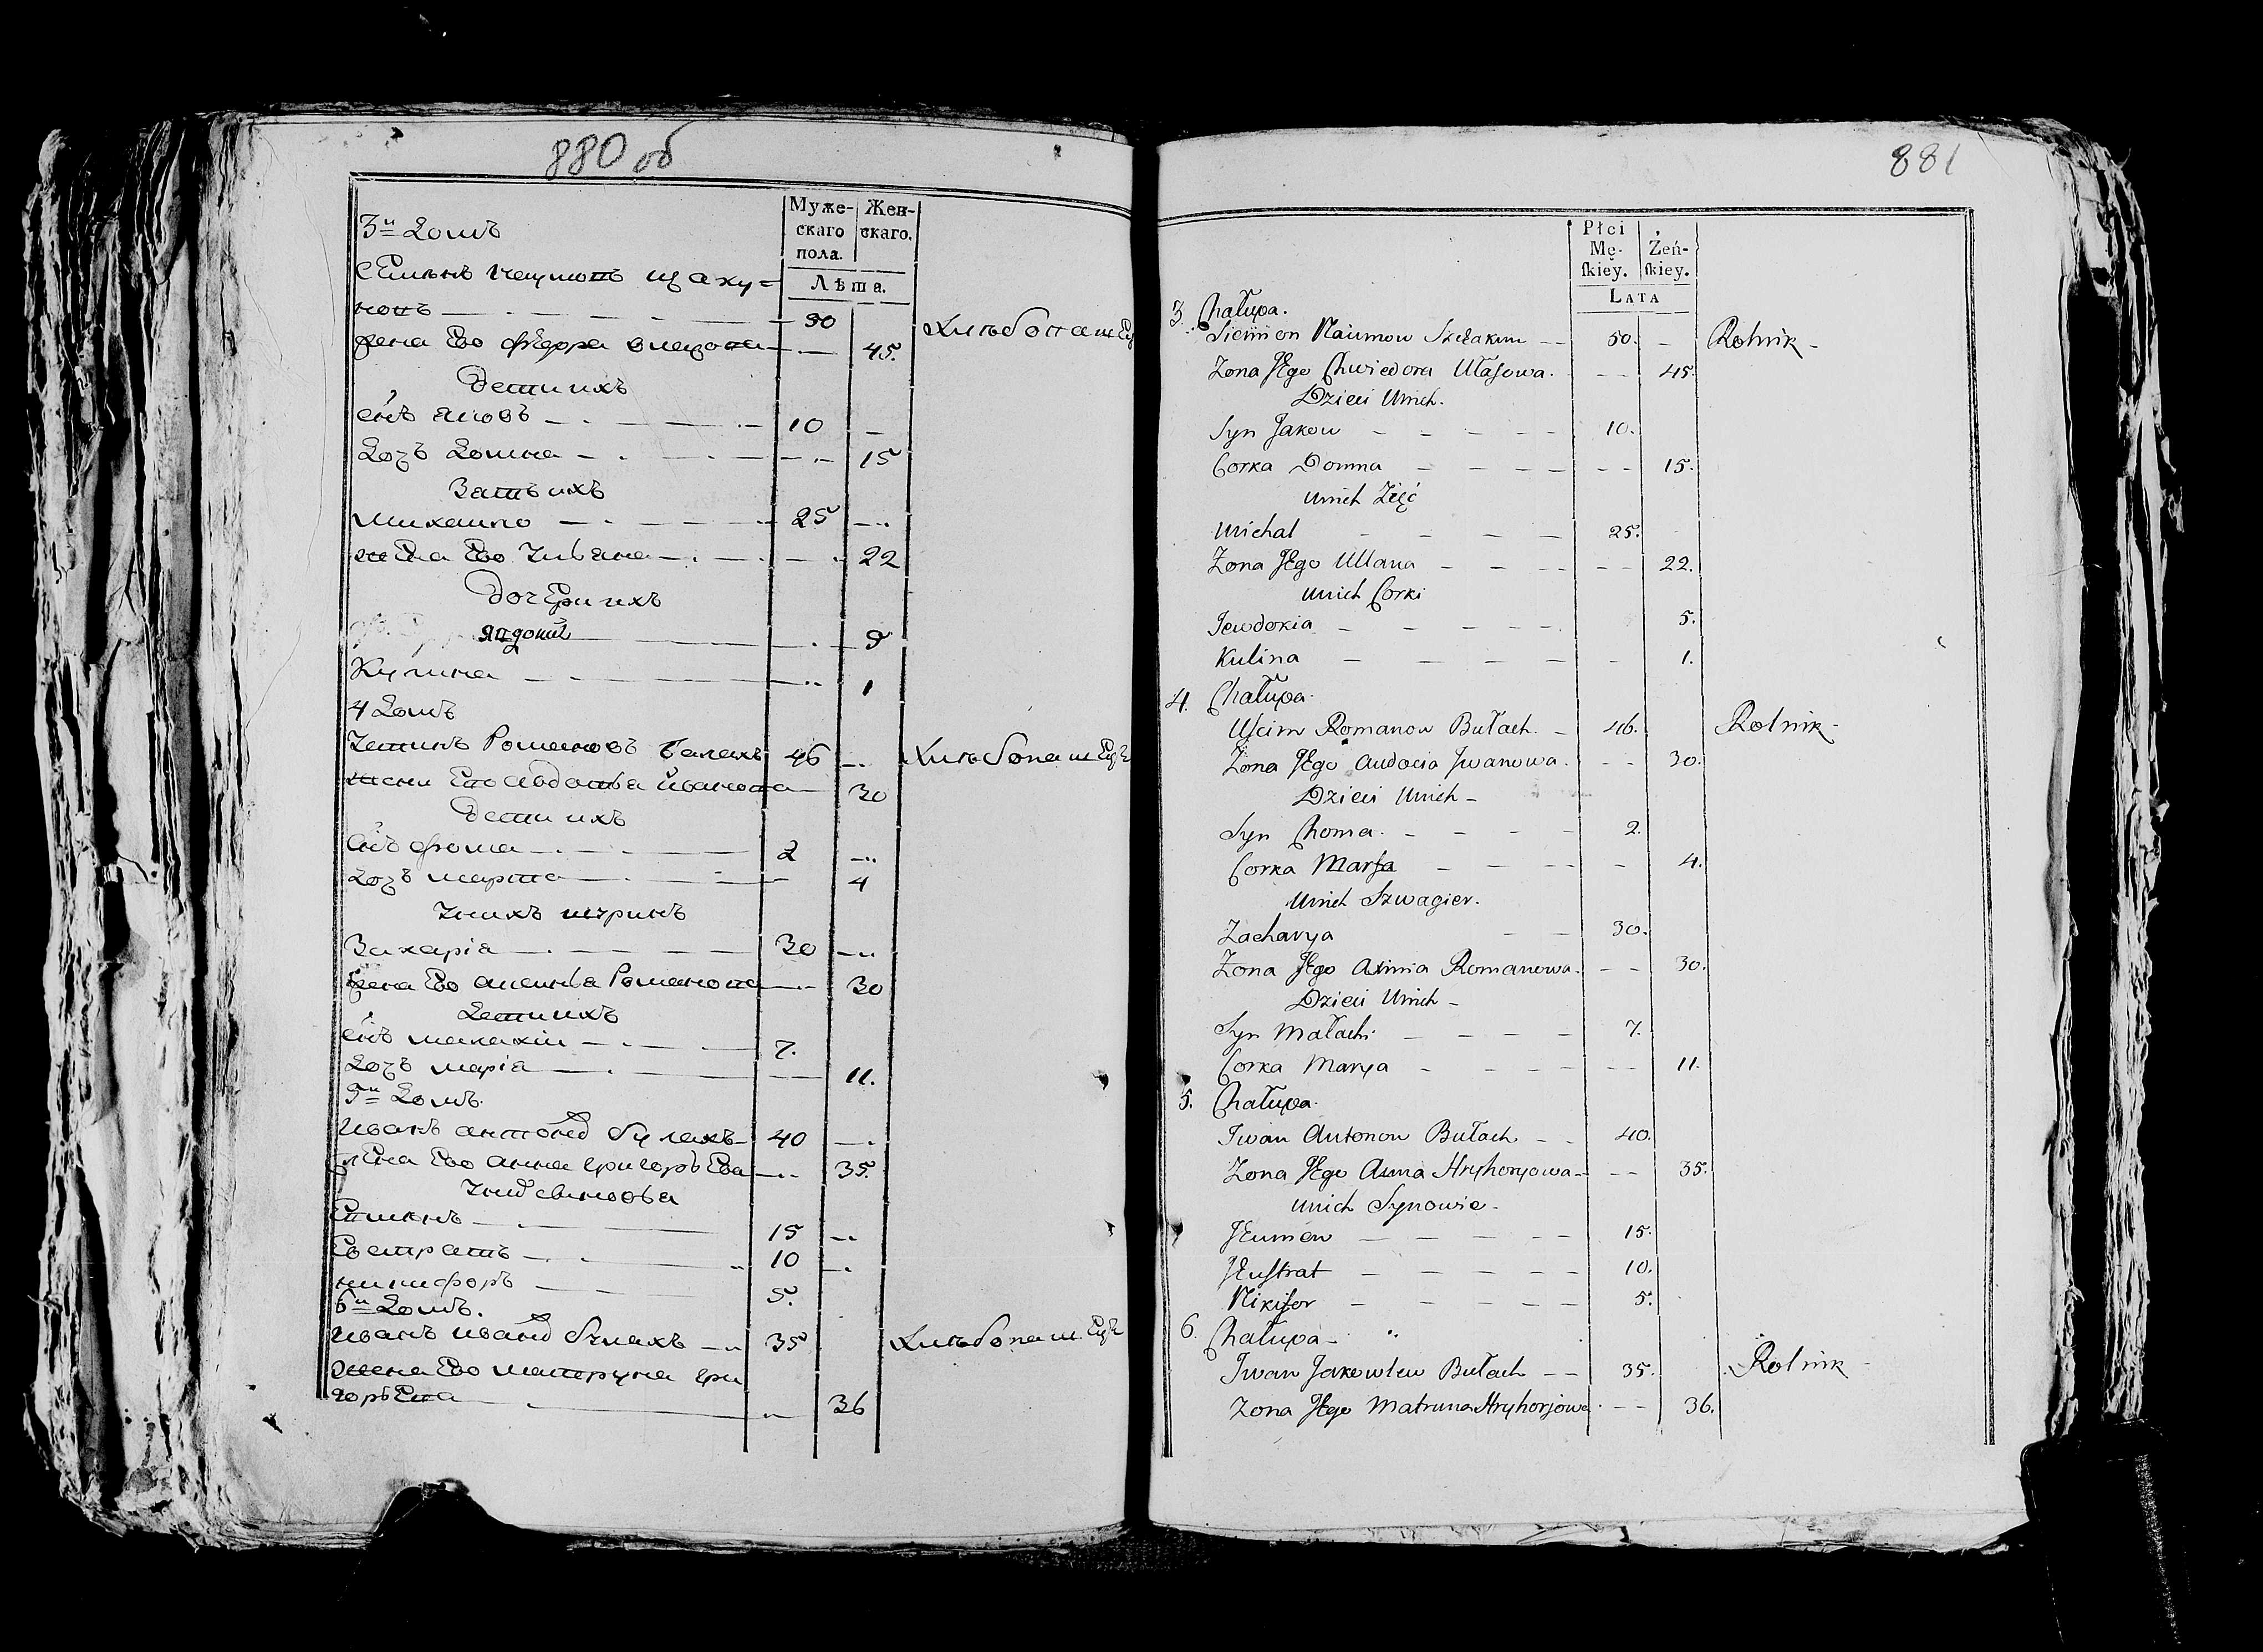 880 об
Муже- Жен-
скаго скаго.
пола.
Лѣта.
3й Домъ
50
жена Ево 45.
Дети ихъ
сиъ Яковъ 10
Дочъ Домна 15
Зять ихъ
Михаило 25
жена Ево Ульяна 22
Дочери ихъ
5
Кулина 1
4 Домъ
Романовъ 46 Хлѣбопашецъ
30
Дети ихъ
сиъ Фома 2
Дочъ Марта 4
У нихъ шуринъ
Захарія 30
жена Ево Романова 30
Дети ихъ
сиъ Малахіи 7.
Дочъ Марія 11.
5й Домъ.
Иванъ Антоновъ Булахъ 40
жена Ево Анна Григорьева 35.
У них сыновья
15
Евстратъ 10
Никифоръ 5.
6й Домъ.
Иванъ 35 Хлѣбопашецъ
жена Ево Матруна Гри
горьева 36
881
Płci
Mę- Żeń-
ſkiey. ſkiey.
LATA
3. Chałupa.
Siemion Naumow 50. Rolnik
Zona JEgo Chwiedora Ułasowa. 45.
Dzieci Unich.
Syn Jakow 10.
Corka Domna 15.
Unich Zięć
Michał 25.
Zona JEgo Ullana 22.
Unich Corki
Jewdokia 5.
Kulina 1.
4. Chałupa.
Uscim Romanow Bułach. 46. Rolnik
Zona JEgo Audocia Jwanowa. 30.
Dzieci Unich
Syn Choma. 2.
Corka Marfa 4.
Unich Szwagier.
Zacharya 30.
Zona JEgo Axinia Romanowa. 30.
Dzieci Unich
Syn Małachi 7.
Corka Marya 11.
5. Chałupa.
Jwan Antonow Bułach 40.
Zona JEgo Anna Hryhoryowa 35.
Unich Synowie
JEumen 15.
JEustrat 10.
Nikifor 5.
6. Chałupa
Jwan Jakowlew Bułach 35. Rolnik
Zona JEgo Matruna Hryhorjowa. 36.